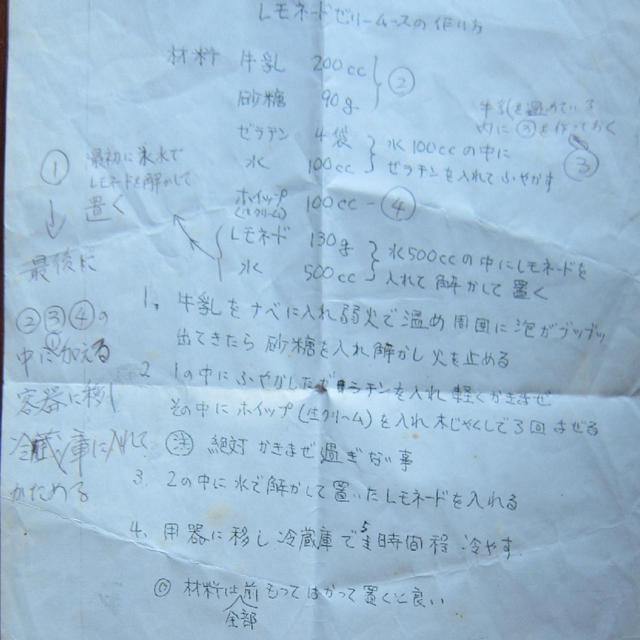 レモネードゼリームースの作り方
材料 牛乳 200cc ②
砂糖 90g
ゼラチン 4袋
水 100cc
水100ccの中に
ゼラチンを入れてふやかす
牛乳を温めている
内に③を作っておく
③
ホイップ(生クリーム) 100cc - ④
レモネード 130g
水 500cc
水500ccの中にレモネードを
入れて解かして置く
① 最初に水で
レモネードを解かして
置く
↓
最後に
②③④の
中に加える
容器に移し
冷蔵庫に入れて
かためる
1. 牛乳をナベに入れ弱火で温め周囲に泡がブツブツ
出てきたら砂糖を入れ解かし火を止める
2. 1の中にふやかしたゼラチンを入れ軽くかきまぜ
その中にホイップ(生クリーム)を入れ木じゃくしで3回まぜる
注 絶対かきまぜ過ぎない事
3. 2の中に水で解かして置いたレモネードを入れる
4. 用器に移し冷蔵庫で 時間程冷やす
◎ 材料は全部前もってはかって置くと良い